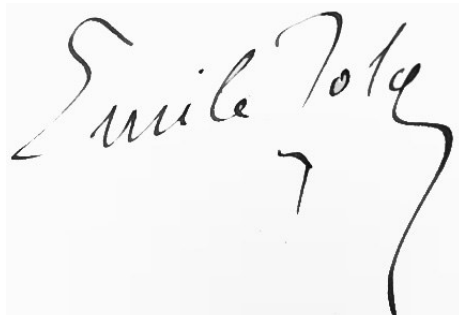 Emile Zola